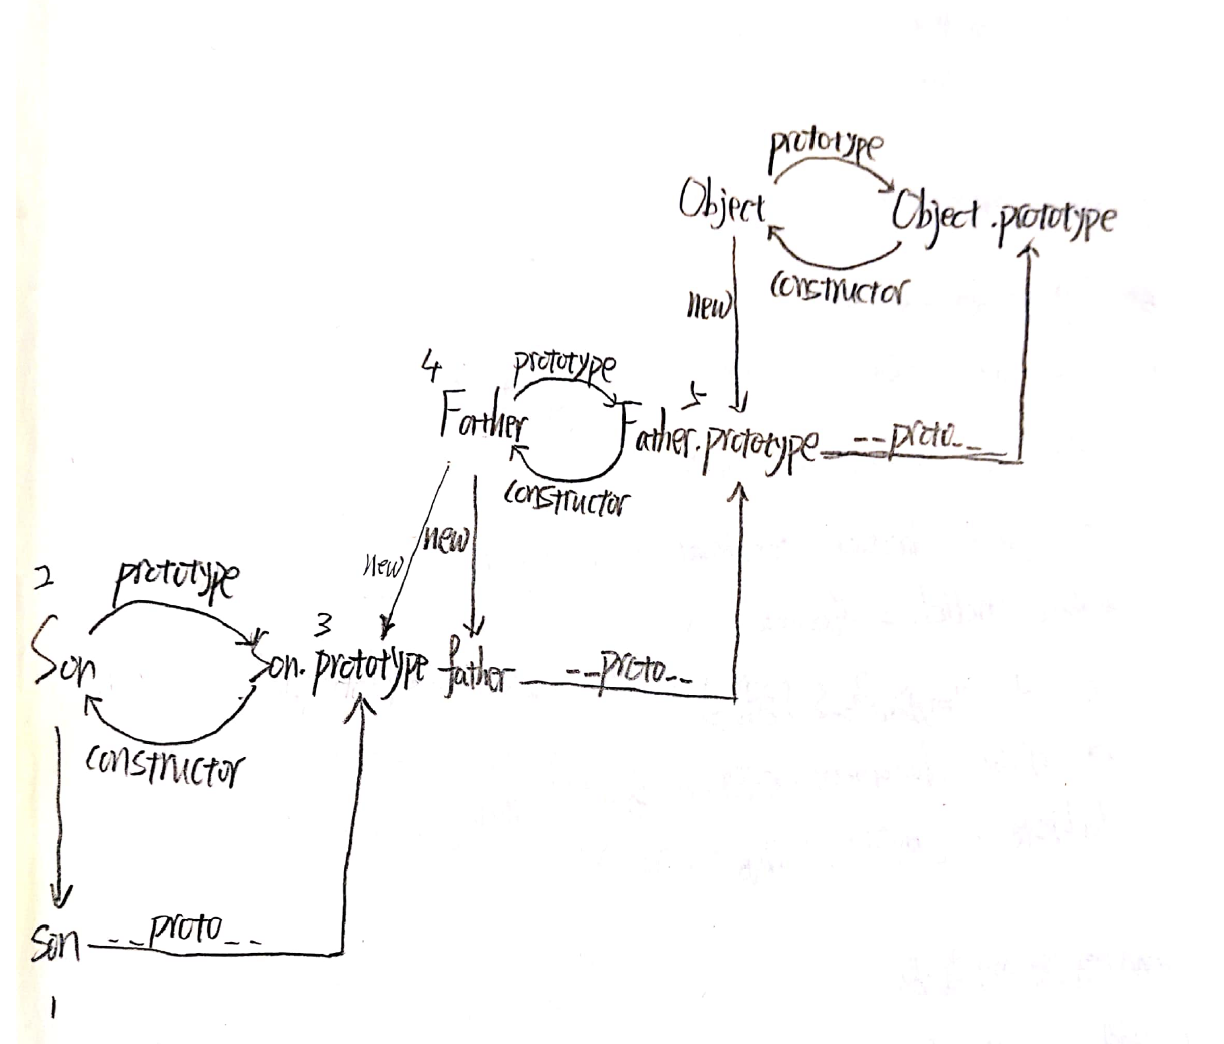 prototype
Object Object.prototype
constructor
new
4 prototype 5
Farther Father.prototype __proto__
constructor
new new
2 prototype 3
Son Son.prototype father __proto__
constructor
son __proto__
1